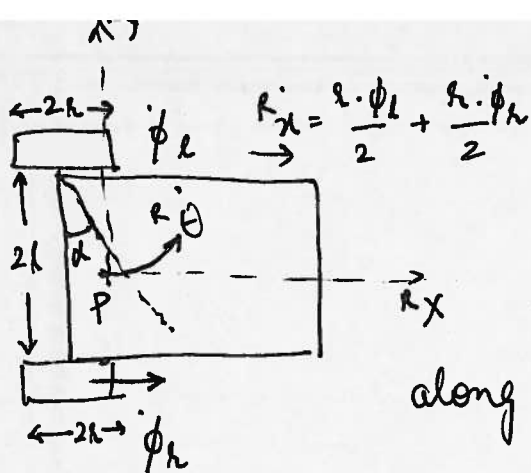 ←2r→ φ̇ₗ
ᴿẋ = r·φ̇ₗ/2 + r·φ̇ᵣ/2
→
2l α ᴿθ̇
P ᴿX
along
←2r→ φ̇ᵣ